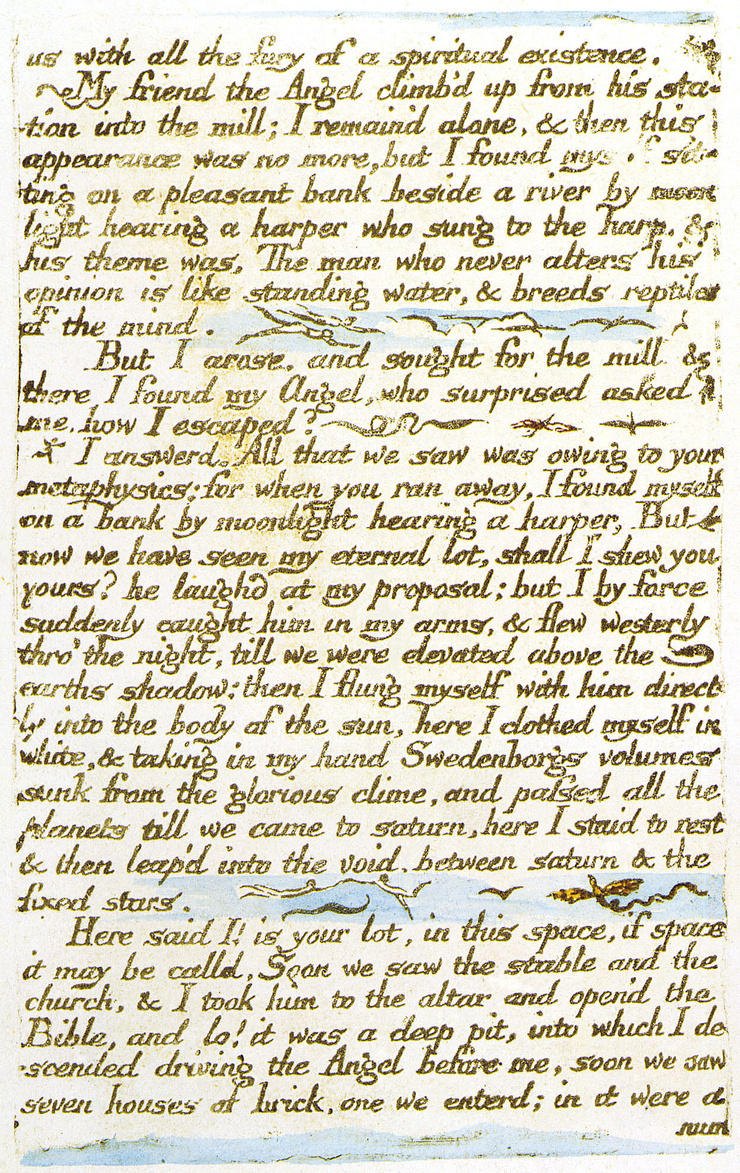 us with all the fury of a spiritual existence.
My friend the Angel climb'd up from his sta-
-tion into the mill; I remain'd alone, & then this
appearance was no more, but I found myself sit-
ting on a pleasant bank beside a river by moon
light hearing a harper who sung to the harp. &
his theme was, The man who never alters his
opinion is like standing water, & breeds reptiles
of the mind.
But I arose, and sought for the mill &
there I found my Angel, who surprised asked
me, how I escaped?
I answerd. All that we saw was owing to your
metaphysics; for when you ran away, I found myself
on a bank by moonlight hearing a harper, But
now we have seen my eternal lot, shall I shew you
yours? he laughd at my proposal; but I by force
suddenly caught him in my arms, & flew westerly
thro' the night, till we were elevated above the
earths shadow; then I flung myself with him direct-
ly into the body of the sun, here I clothed myself in
white, & taking in my hand Swedenborgs volumes
sunk from the glorious clime, and passed all the
planets till we came to saturn, here I staid to rest
& then leap'd into the void, between saturn & the
fixed stars.
Here said I! is your lot, in this space, if space
it may be calld, Soon we saw the stable and the
church, & I took him to the altar and open'd the
Bible, and lo! it was a deep pit, into which I de
-scended driving the Angel before me, soon we saw
seven houses of brick, one we enterd; in it were a
num